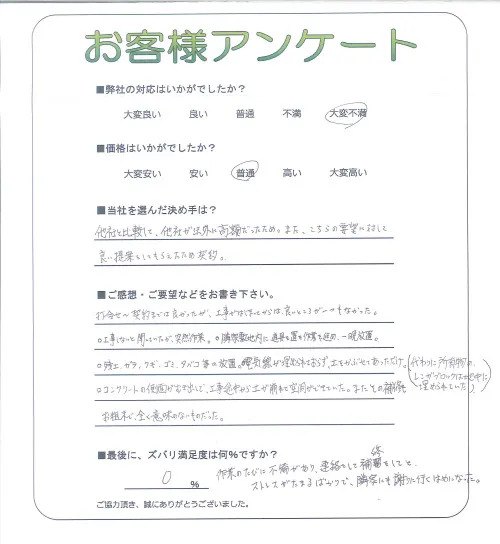 お客様アンケート
■弊社の対応はいかがでしたか？
大変良い 良い 普通 不満 大変不満
■価格はいかがでしたか？
大変安い 安い 普通 高い 大変高い
■当社を選んだ決め手は？
他社と比較して、他社が法外に高額だったため。また、こちらの要望に対して
良い提案をしてもらえたため契約。
■ご感想・ご要望などをお書き下さい。
打合せ〜契約までは良かったが、工事がはじまってからは、良いところが一つもなかった。
○工事しないと聞いていたが、突然作業。○隣家敷地内に道具を置き作業を迂回、一晩放置。
○残土、ガラ、クギ、ゴミ、タバコ等の放置。電気線が埋められておらず、土をかぶせてあっただけ。(代わりに所有物の
レンガブロックは地中に
埋められていた)
○コンクリートの側面がむき出しで、工事途中から土が崩れて空間ができていた。またその補修
お粗末で、全く意味のないものだった。
■最後に、ズバリ満足度は何%ですか？
0 %
作業のたびに不備があり、連絡をして補修をしてと、
修
ストレスがたまるばかりで、隣家にも謝りに行くはめになった。
ご協力頂き、誠にありがとうございました。